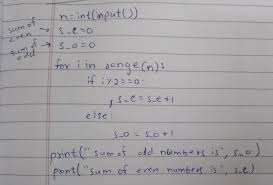 n=int(input())
sum of even → s_e=0
sum of odd → s_o=0
for i in range(n):
if i%2==0:
s_e=s_e+1
else:
s_o=s_o+1
print("sum of odd numbers is", s_o)
print("sum of even numbers is", s_e)